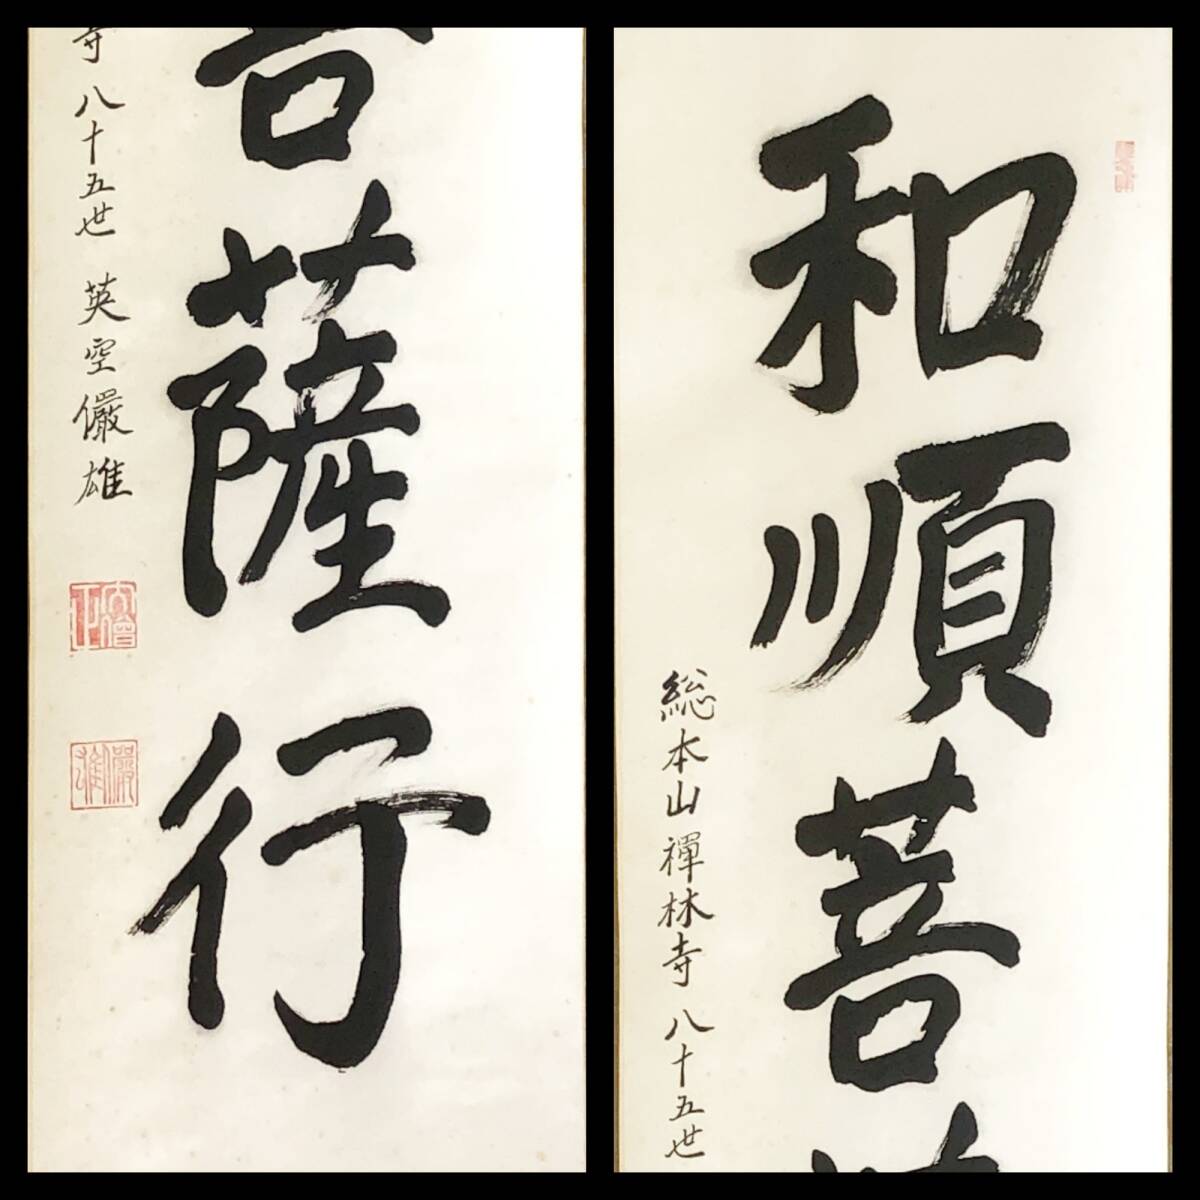 和順菩薩
総本山禅林寺八十五世
菩薩行
寺八十五世 英空儼雄
儼雄